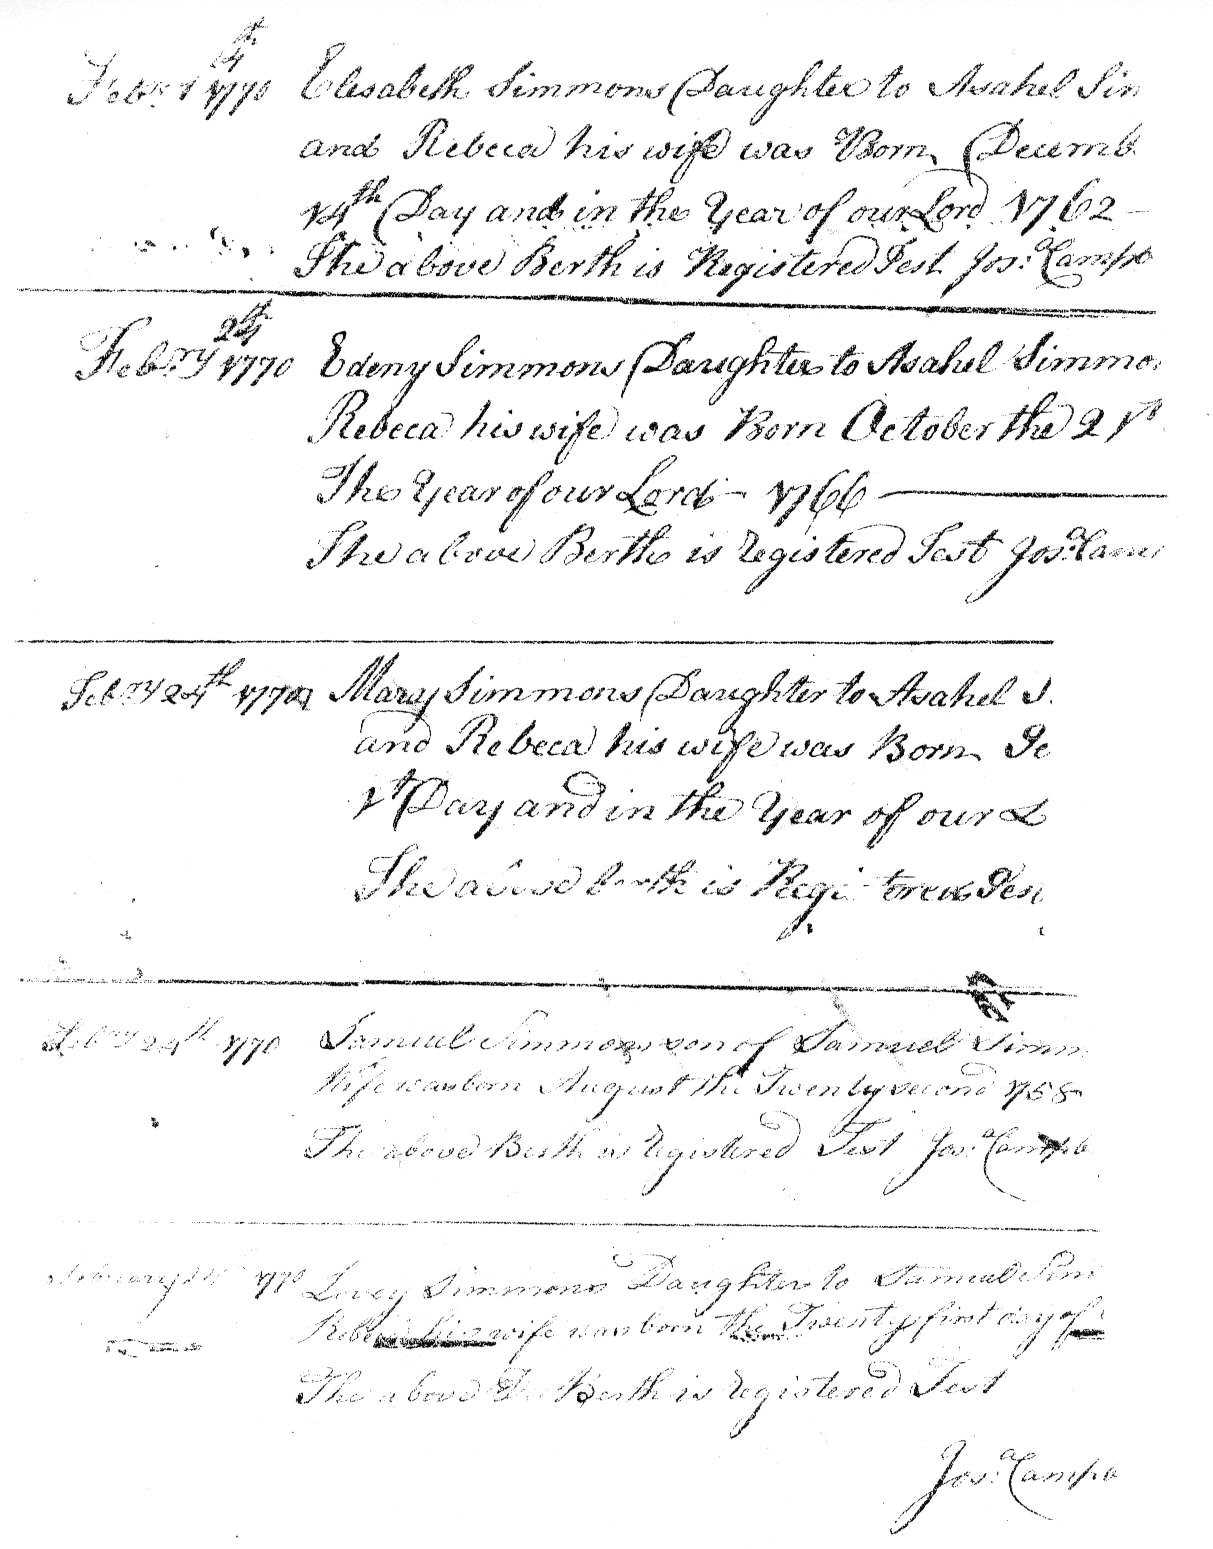 24th
Febry 1770 Elesabeth Simmons Daughter to Asahel Sim
and Rebeca his wife was Born Decemb
14th Day and in the Year of our Lord 1762
The above Berth is Registered Test Josa. Campo
24th
Febry 1770 Edeny Simmons Daughter to Asahel Simmo
Rebeca his wife was Born October the 21st
The Year of our Lord 1766
The above Berth is registered Test Josa. Cam
Febry 24th 1770 Mary Simmons Daughter to Asahel S
and Rebeca his wife was Born
1st Day and in the Year of our L
The above berth is Registered Tes
Febry 24th 1770 Samuel Simmons son of Samuel Simm
Wife was born August the Twenty second 1758
The above Berth is registered Test Josa. Campb
February 24 1770 Lovey Simmons Daughter to Samuel Sim
Rebeca his wife was born the Twenty first day of
The above Berth is registered Test
Josa. Campo